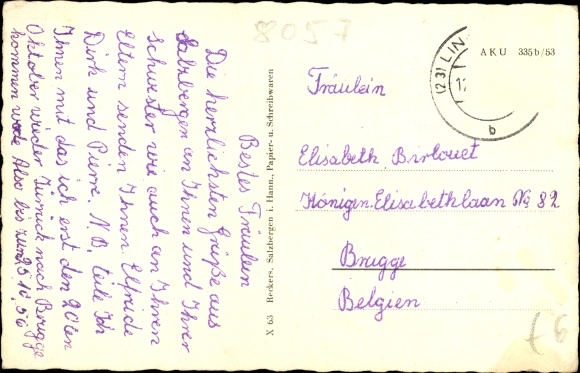 8057
Bestes Fräulein
Die herzlichsten Grüße aus
Salzbergen an Ihnen und Ihrer
Schwester wie auch an Ihren
Eltern senden Ihnen. Elfride
Dirk und Pierre. N.B. teile Ich
Ihnen mit das ich erst den 20ten
Oktober wieder Zurück nach Brugge
kommen werde Also bis zum 25 10, 56
X 63 Reckers, Salzbergen i. Hann., Papier- u. Schreibwaren
(23) LIN
b
AKU 335b/53
Fräulein
Elisabeth Birlouet
Königen. Elisabethlaan No 82
Brugge
Belgien